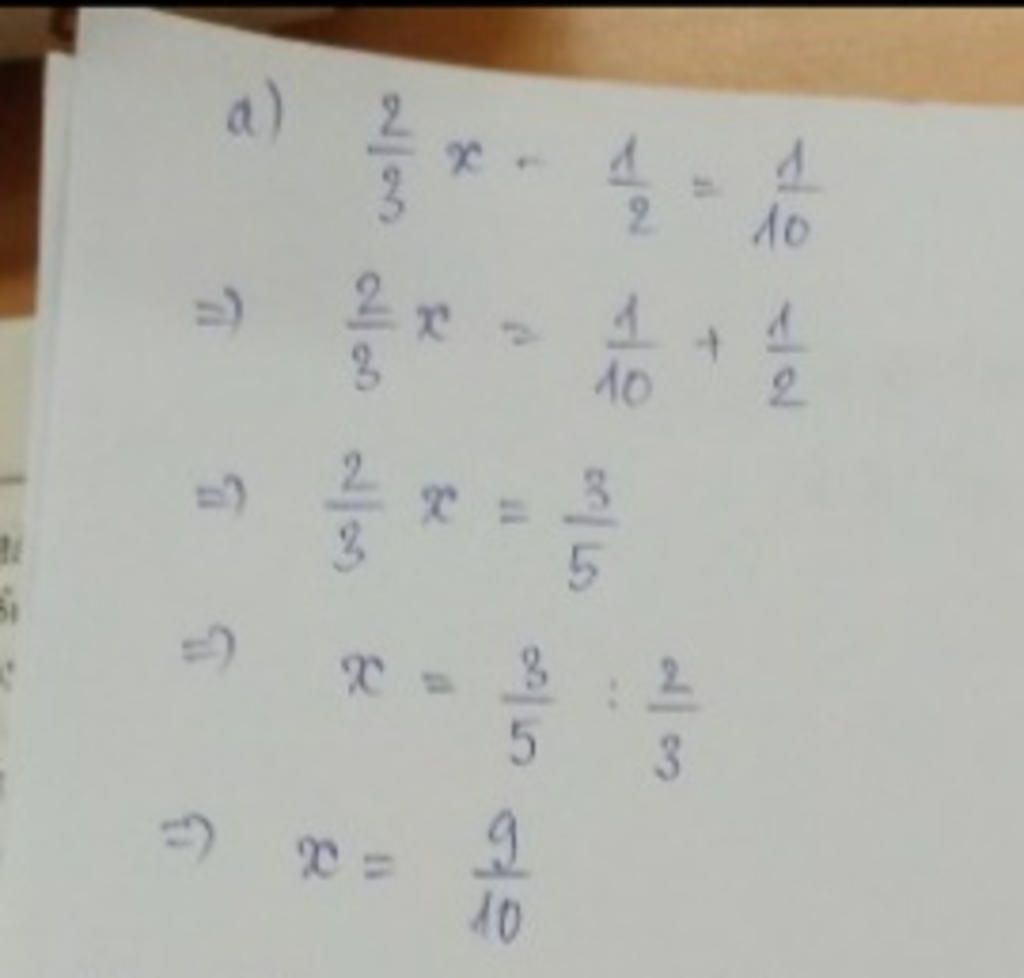 a) 2/3 x - 1/2 = 1/10
=) 2/3 x = 1/10 + 1/2
=) 2/3 x = 3/5
=) x = 3/5 : 2/3
=) x = 9/10